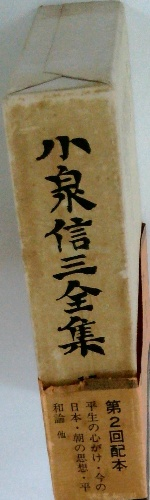 小泉信三全集
第2回配本
平生の心がけ・今の
日本・朝の思想・平
和論 他